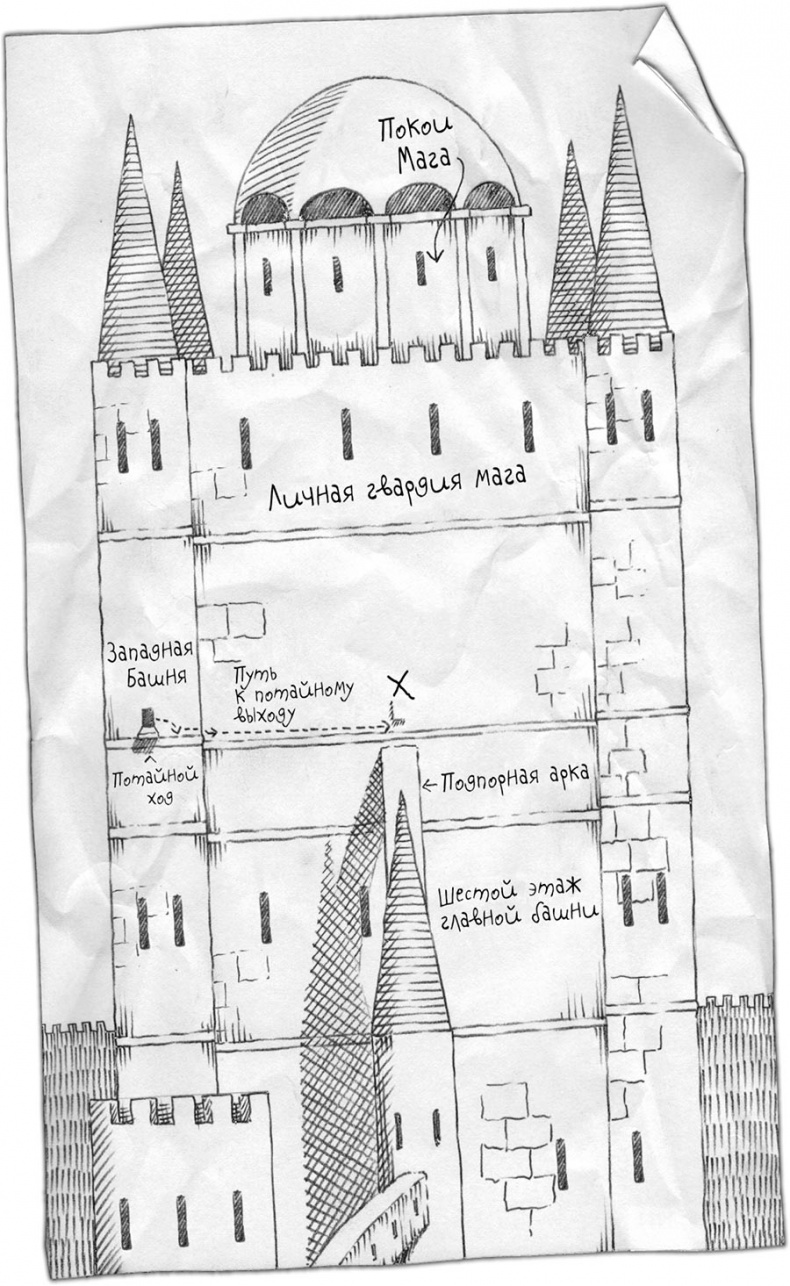 Покои
Мага
Личная гвардия мага
Западная
башня
Путь
к потайному
выходу
X
Потайной
ход
←Подпорная арка
Шестой этаж
главной башни